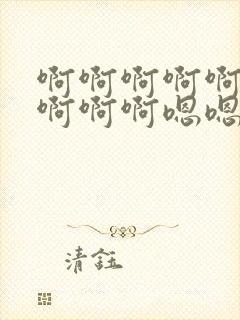 啊啊啊啊啊
啊啊啊嗯嗯
清鈺